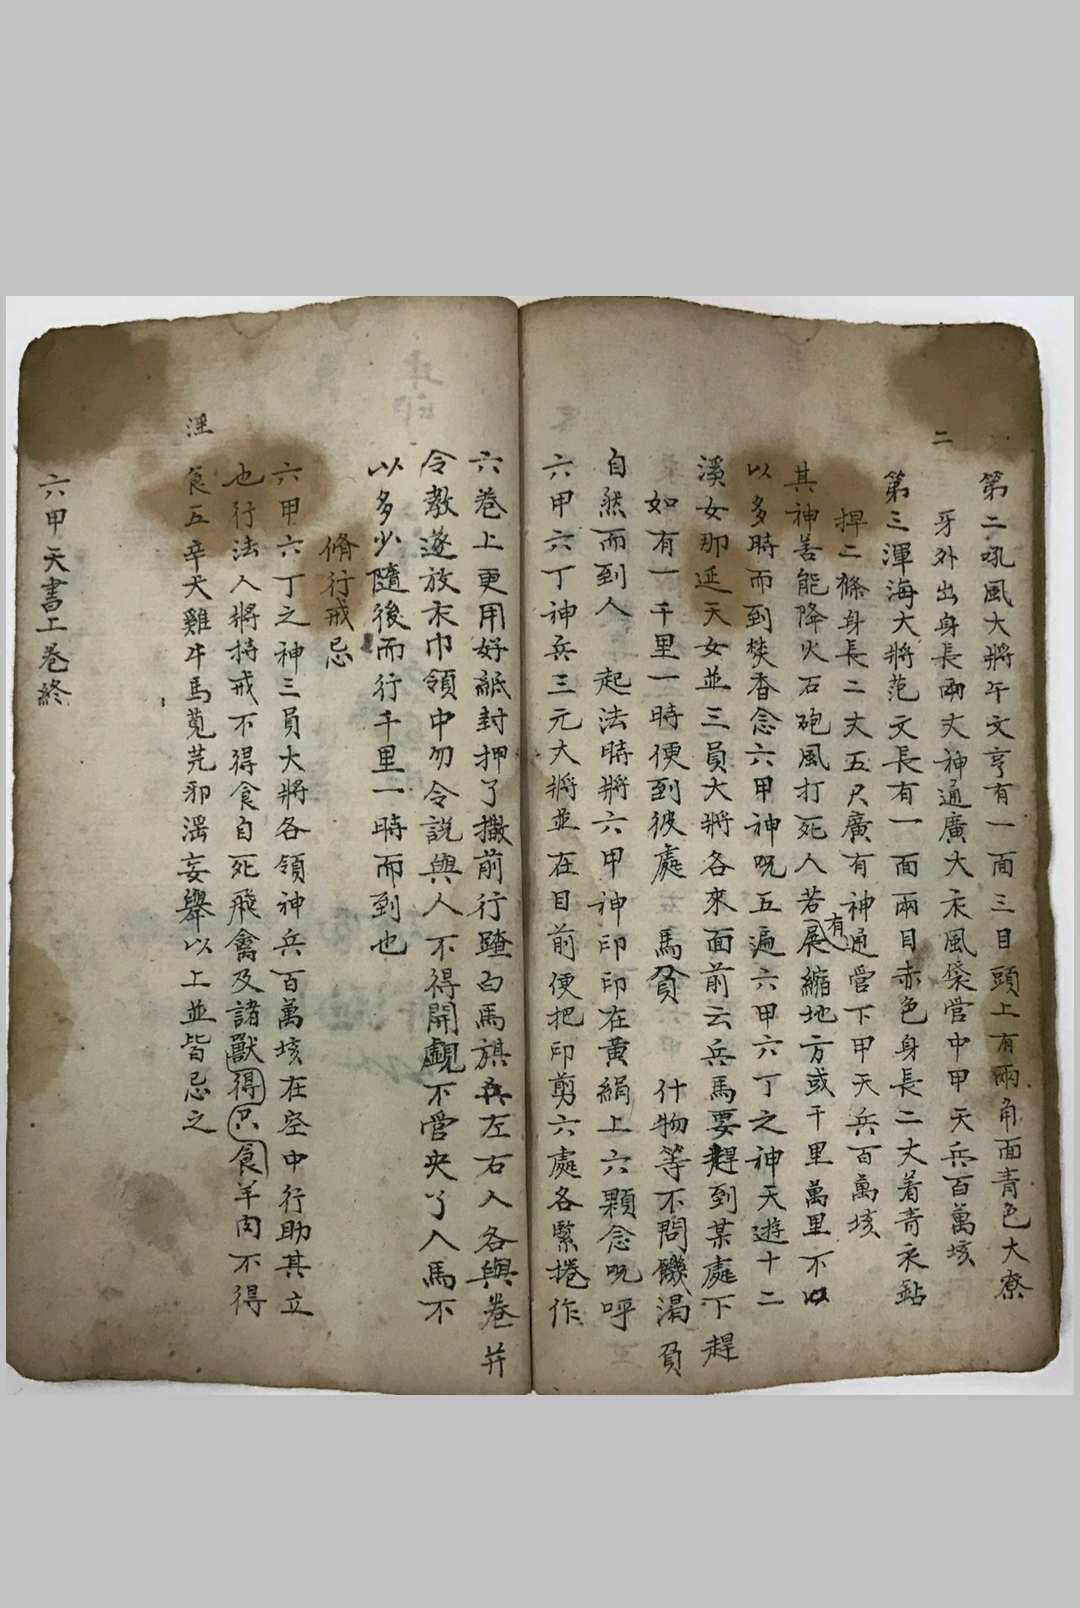 第二吼風大將午文亨有一面三目頭上有兩角面青色大寮
二
牙外出身長兩丈神通廣大禾風袋営中甲天兵百萬垓
第三渾海大將范文長有一面兩目赤色身長二丈着青衣鈷
捍二條身長二丈五尺廣有神通営下甲天兵百萬垓
其神善能降火石砲風打死人若有展縮地方或千里萬里不以
以多時而到焚香念六甲神呪五遍六甲六丁之神天遊十二
溪女那延天女並三員大將各來面前云兵馬要趕到某處下趕
如有一千里一時便到彼處 馬貧 什物等不問饑渴負
自然而到人 起法時將六甲神印印在黄絹上六顆念呪呼
六甲六丁神兵三元大將並在目前便把印剪六處各緊捲作
六卷上更用好紙封押了撒前行踏白馬旗兵左右人各與卷并
令教遂放末巾領中勿令説與人不得開覷不営央了人馬不
以多少隨後而行千里一時而到也
脩行戒忌
六甲六丁之神三員大將各領神兵百萬垓在空中行助其立
也行法人將持戒不得食自死飛禽及諸獸得只食羊肉不得
淫
食五辛犬雞牛馬莧芫邪滛妄舉以上並皆忌之
六甲天書上卷終